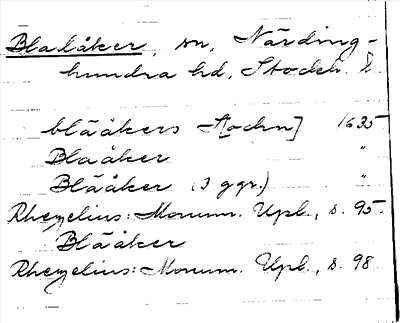 Bladåker, sn, Närding-
hundra hd, Stockh. l.
blååkers Sochn] 1635
Blååker "
Blååker (3 ggr.) "
Rhezelius: Monum. Upl., s. 95.
Blååker
Rhezelius: Monum. Upl., s. 98.